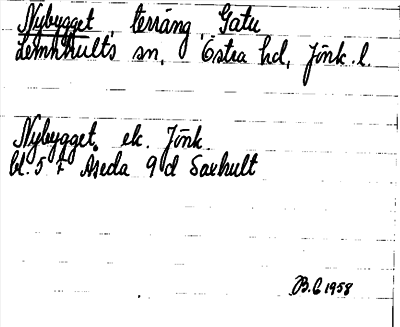 Nybygget, terräng, Gatu
Lemnhults sn, Östra hd, Jönk. l.
Nybygget ek. Jönk.
bl. 5 F Åseda 9 d Saxhult
B. G 1958